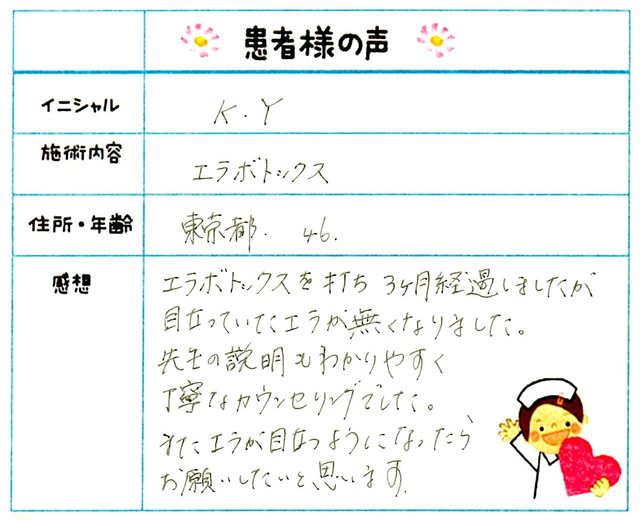 患者様の声
イニシャル
K.Y
施術内容
エラボトックス
住所・年齢
東京都. 46.
感想
エラボトックスを打ち 3ヶ月経過しましたが
目立っていたエラが無くなりました。
先生の説明もわかりやすく
丁寧なカウンセリングでした。
またエラが目立つようになったら、
お願いしたいと思います.